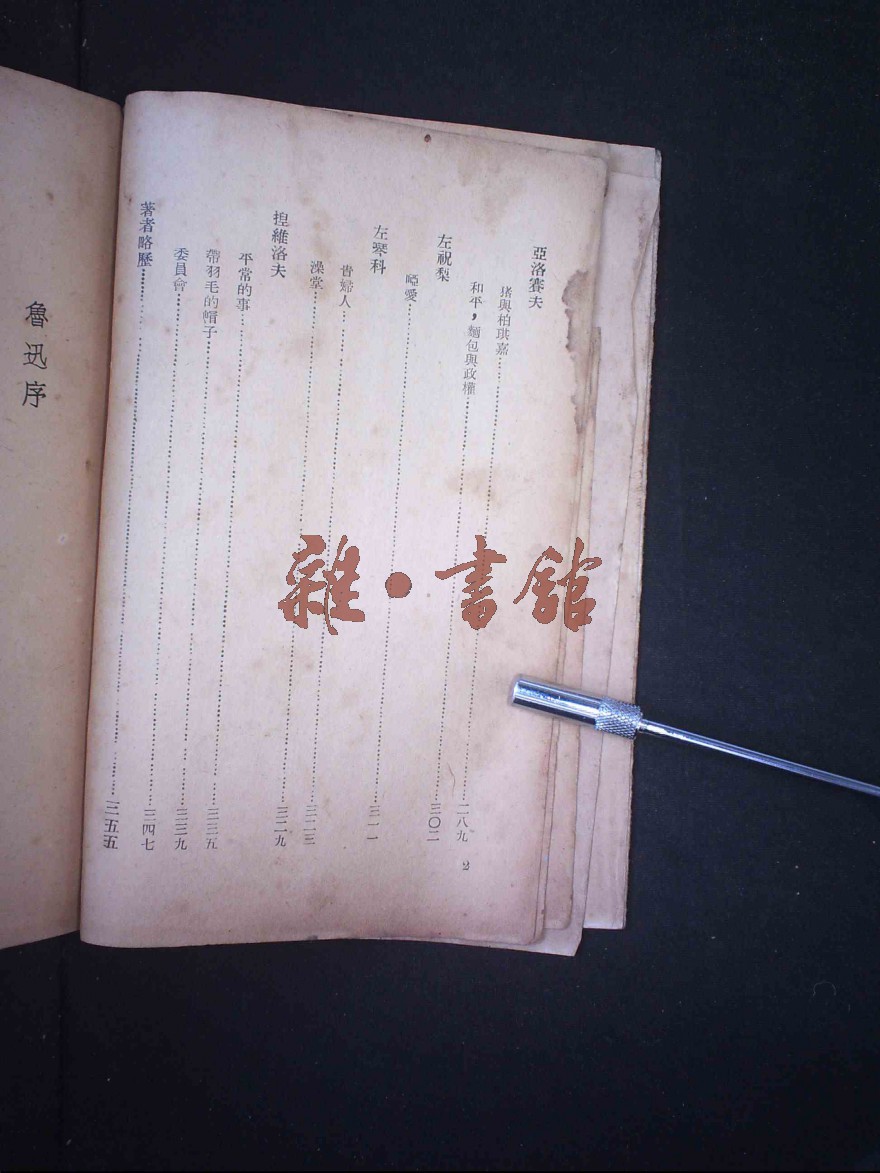 亞洛賽夫
堵與柏琪嘉……二八九
和平，麵包與政權……三〇二
左祝梨
啞愛……三一一
左琴科
貴婦人……三二三
澡堂……三二九
捏維洛夫
平常的事……三三五
帶羽毛的帽子……三三九
委員會……三四七
著者略歷……三五五
2
魯迅序
雜·書館